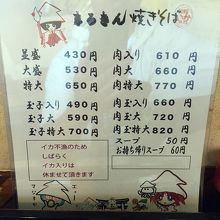 まるきん焼きそば
並盛 430円
大盛 530円
特大 650円
玉子入り 490円
玉子大 590円
玉子特大 700円
肉入り 610円
肉大 660円
肉特大 770円
肉玉入り 660円
肉玉大 710円
肉玉特大 820円
スープ 50円
お持ち帰りスープ 60円
イカ不漁のため
しばらく
イカ入りは
休ませて頂きます